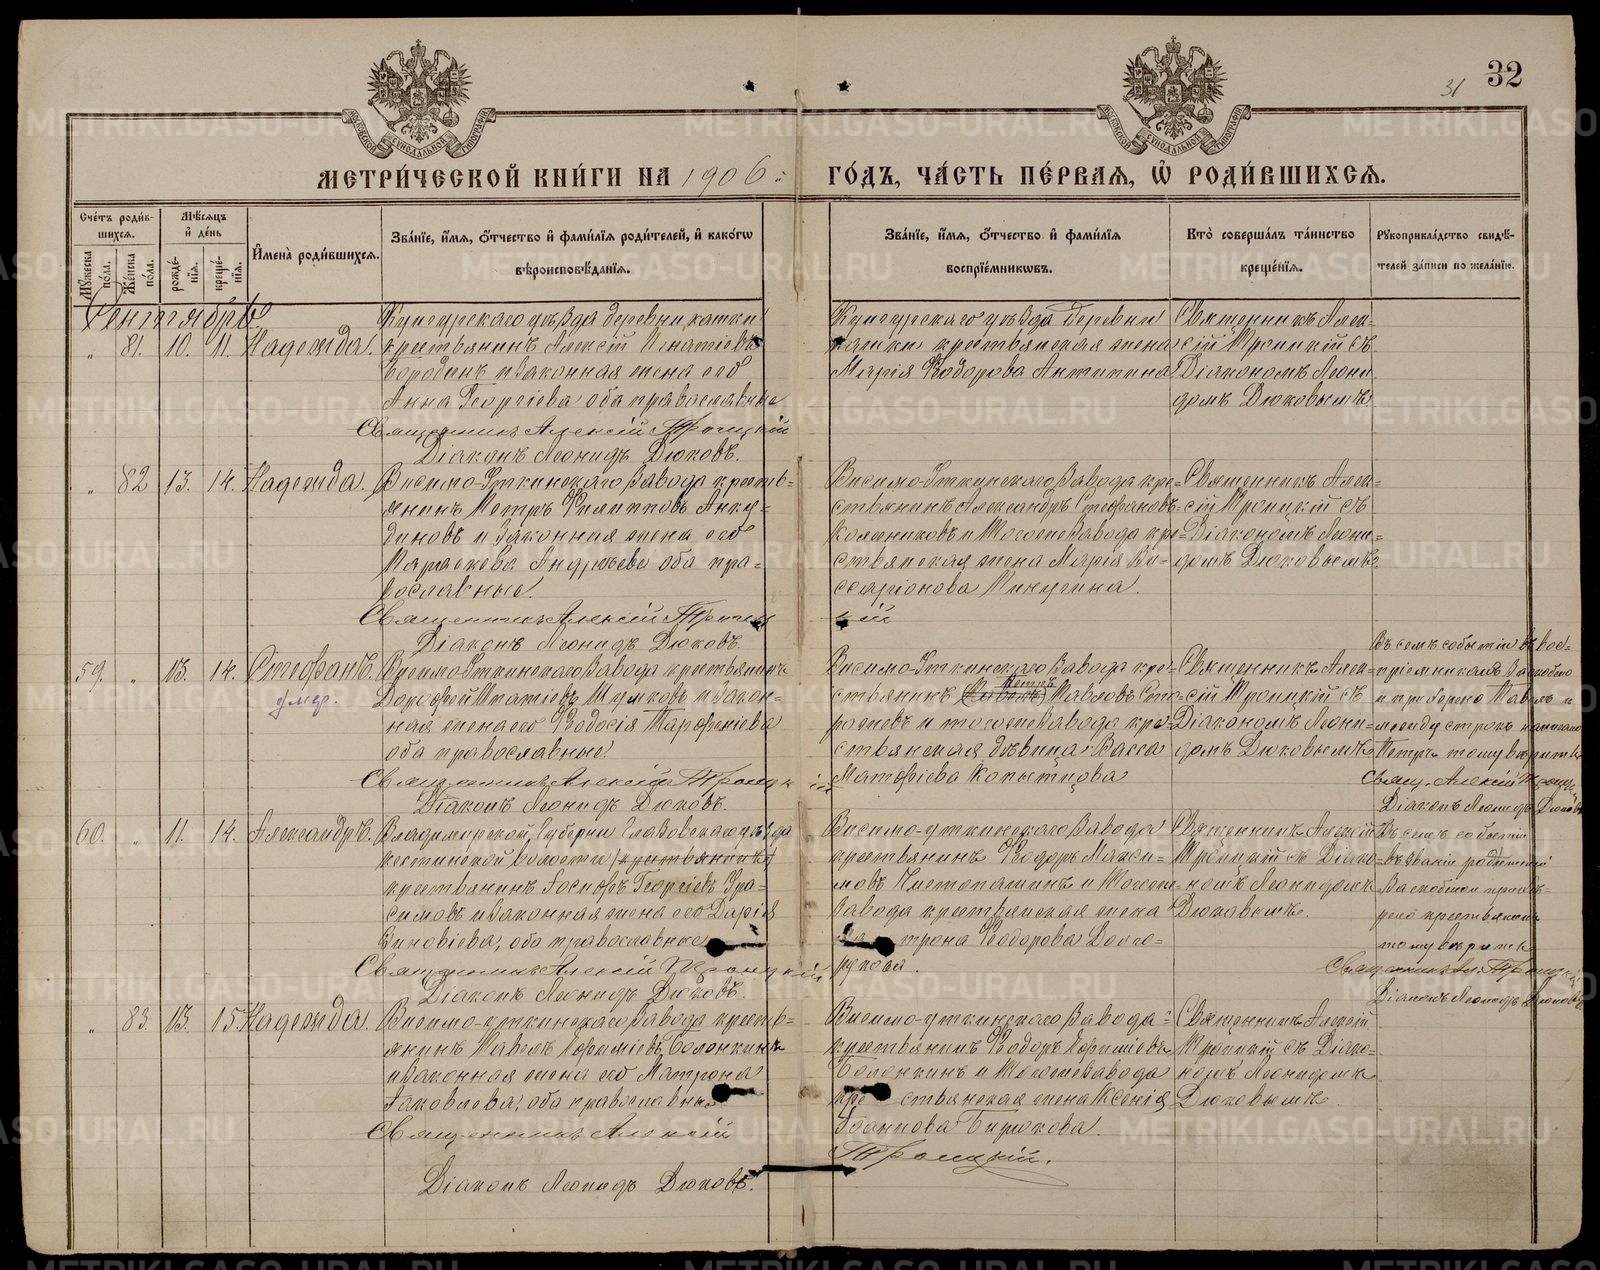 32
31
МЕТРИ́ЧЕСКОЙ КНИ́ГИ НА 1906 ГО́ДЪ, ЧА́СТЬ ПЕ́РВАѦ, Ѡ҆ РОДИ́ВШИХСѦ.
Сче́тъ роди́в-
шихсѧ.
Мꙋ́жеска по́ла.
Же́нска по́ла.
Мѣ́сѧцъ
и҆ де́нь
рожде́-
нїѧ.
креще́-
нїѧ.
И҆мена̀ роди́вшихсѧ.
Зва́нїе, и҆́мѧ, ѻ҆́тчество и҆ фами́лїѧ роди́телей, и҆ како́гѡ
вѣроисповѣ́данїѧ.
Зва́нїе, и҆́мѧ, ѻ҆́тчество и҆ фами́лїѧ
воспрїе́мникѡвъ.
Кто̀ соверша́лъ та́инство
креще́нїѧ.
Рꙋкоприкла́дство свидѣ́-
телей за́писи по жела́нїю.
Сентябрь
81. 10. 11. Надежда.
Кунгурскаго уѣзда деревни
крестьянинъ Алексій Игнатіевъ
Бородинъ и законная жена его
Анна Георгіева оба православные
Священникъ Алексій Троицкій
Діаконъ Леонидъ Дюковъ.
Кунгурскаго уѣзда деревни
крестьянская жена
Марія Ѳеодорова Антипина
Священникъ Алек-
сій Троицкій съ
Діакономъ Леони
домъ Дюковымъ
82 13. 14. Надежда.
Висимо-Уткинскаго завода кресть-
янинъ Петръ Филипповъ Анку-
диновъ и законная жена его
Параскева Андреева оба пра-
вославные.
Священникъ Алексій Троиц
кій
Діаконъ Леонидъ Дюковъ.
Висимо-Уткинскаго завода кре-
стьянинъ Александръ Стефановъ
и тогоже завода кре-
стьянская жена Марія Ви-
саріонова Пинегина.
Священникъ Алек-
сій Троицкій съ
Діакономъ Леони-
домъ Дюковымъ.
59. 13. 14. Стефанъ.
умер.
Висимо-Уткинскаго завода крестьянинъ
Дорофей Игнатіевъ и закон-
ная жена его Ѳеодосія Парфеніева
оба православные.
Священникъ Алексій Троицкій
Діаконъ Леонидъ Дюковъ.
Висимо-Уткинскаго завода кре-
Петръ
стьянинъ (Павелъ) Павловъ
и тогоже завода кре-
стьянская дѣвица Васса
Матфіева Копытцова
Священникъ Алек-
сій Троицкій съ
Діакономъ Леони-
домъ Дюковымъ
Въ семъ событіи въ вос-
пріемникахъ заскоблено
Павелъ и
между строкъ написано
Петръ тому вѣрить
Свящ. Алексій Троиц
Діаконъ Леонидъ Дюковъ
60. 11. 14. Александръ.
Владимірской губерніи уѣзда
волости (крестьянинъ)
крестьянинъ Іосифъ Георгіевъ Гра-
симовъ и законная жена его Дарія
Зиновіева, оба православные
Священникъ Алексій Троицкій
Діаконъ Леонидъ Дюковъ.
Висимо-уткинскаго завода
крестьянинъ Ѳеодоръ Макси-
мовъ и тогоже
завода крестьянская жена
Матрона Ѳеодорова Долго-
рукова.
Священникъ Алексій
Троицкій съ Діако-
номъ Леонидомъ
Дюковымъ.
Въ семъ событіи
въ званіи родителей
крестьянинъ
тому вѣрить
Священникъ Ал. Троицкій
Діаконъ Леонидъ Дюковъ
83. 13. 15. Надежда.
Висимо-уткинскаго завода кресть-
янинъ Павелъ Ефиміевъ Болонкинъ
и законная жена его Матрона
Іаковлева, оба православные
Священникъ Алексій
Троицкій.
Діаконъ Леонидъ Дюковъ.
Висимо-уткинскаго завода
крестьянинъ Ѳеодоръ Ефиміевъ
Болонкинъ и тогоже завода
крестьянская жена Ксенія
Іоаннова Бирюкова.
Священникъ Алексій
Троицкій съ Діако-
номъ Леонидомъ
Дюковымъ.
METRIKI.GASO-URAL.RU